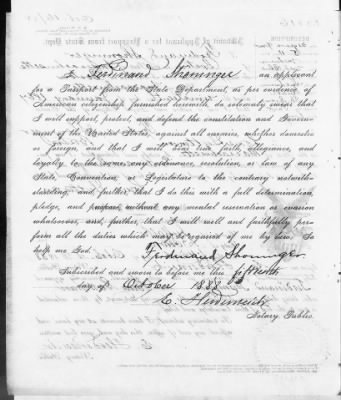 I, Ferdinand Shoninger an applicant
for a Passport from the State Department, as per evidence of
American citizenship furnished herewith, do solemnly swear that
I will support, protect, and defend the constitution and Govern-
ment of the United States, against all enemies, whether domestic
or foreign, and that I will bear true faith, allegiance, and
loyalty to the same, any ordinance, resolution, or law of any
State, Convention, or Legislature to the contrary notwith-
standing, and further, that I do this with a full determination,
pledge, and purpose, without any mental reservation or evasion
whatsoever, and, further, that I will well and faithfully per-
form all the duties which may be required of me by law. So
help me God.
Ferdinand Shoninger
Subscribed and sworn to before me this fifteenth
day of October 1888
Notary Public.